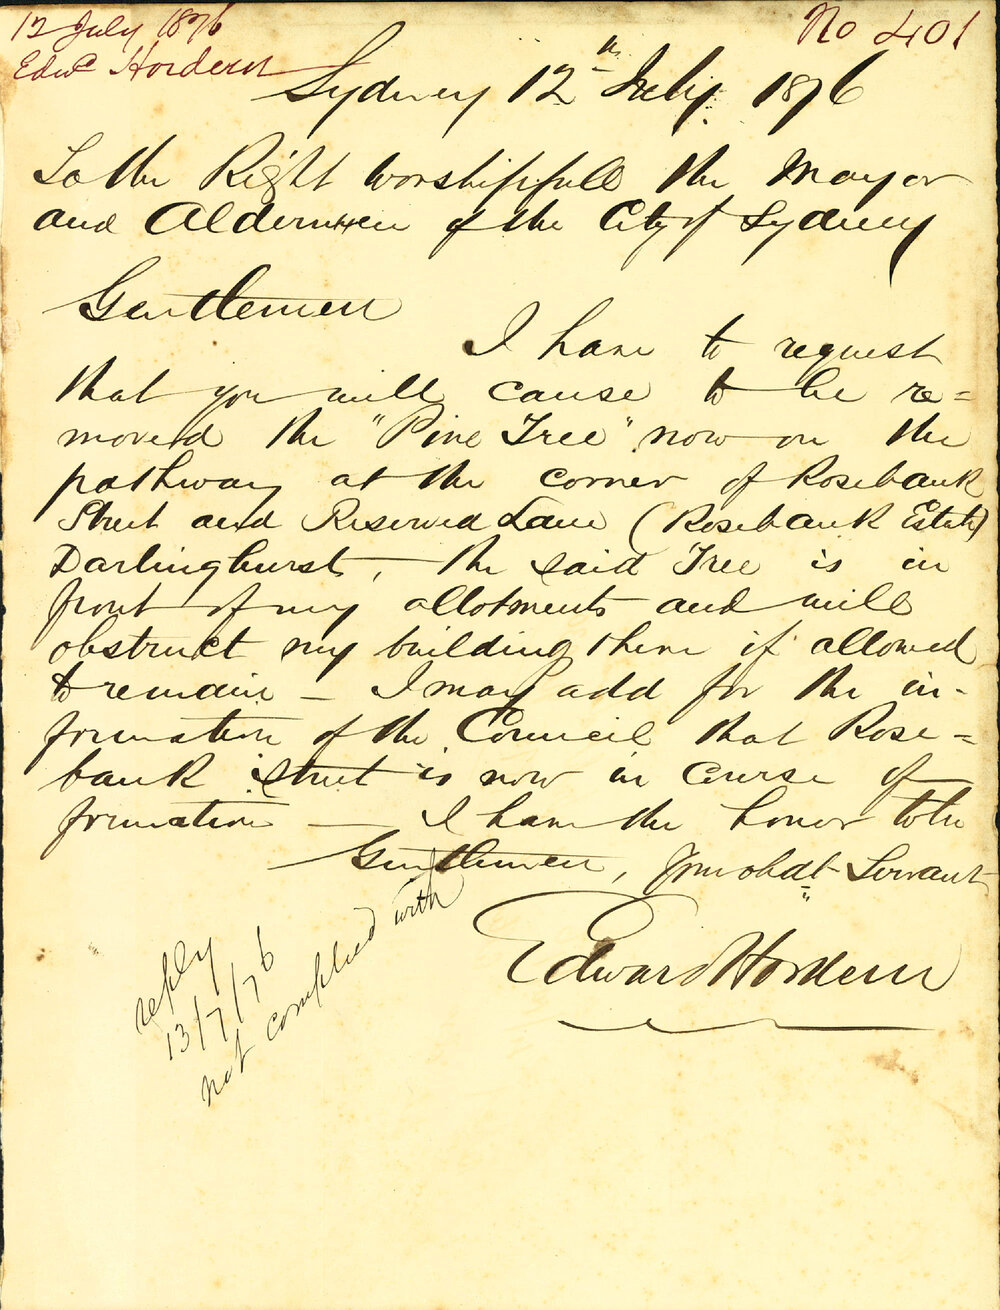 12 July 1876
Edwd Hordern
No 401
Sydney 12th July 1876
To the Right Worshippfull the Mayor
and Aldermen of the City of Sydney
Gentlemen
I have to request
that you will cause to be re=
moved the "Pine Tree" now on the
pathway at the corner of Rosebank
Street and Reserved Lane (Rosebank Estate)
Darlinghurst, - the said Tree is in
front of my allotments and will
obstruct my building there if allowed
to remain - I may add for the in-
formation of the Council that Rose=
bank street is now in course of
formation - I have the honor to be
Gentlemen, Your obdt Servant
Edward Hordern
reply
13/7/76
not complied with